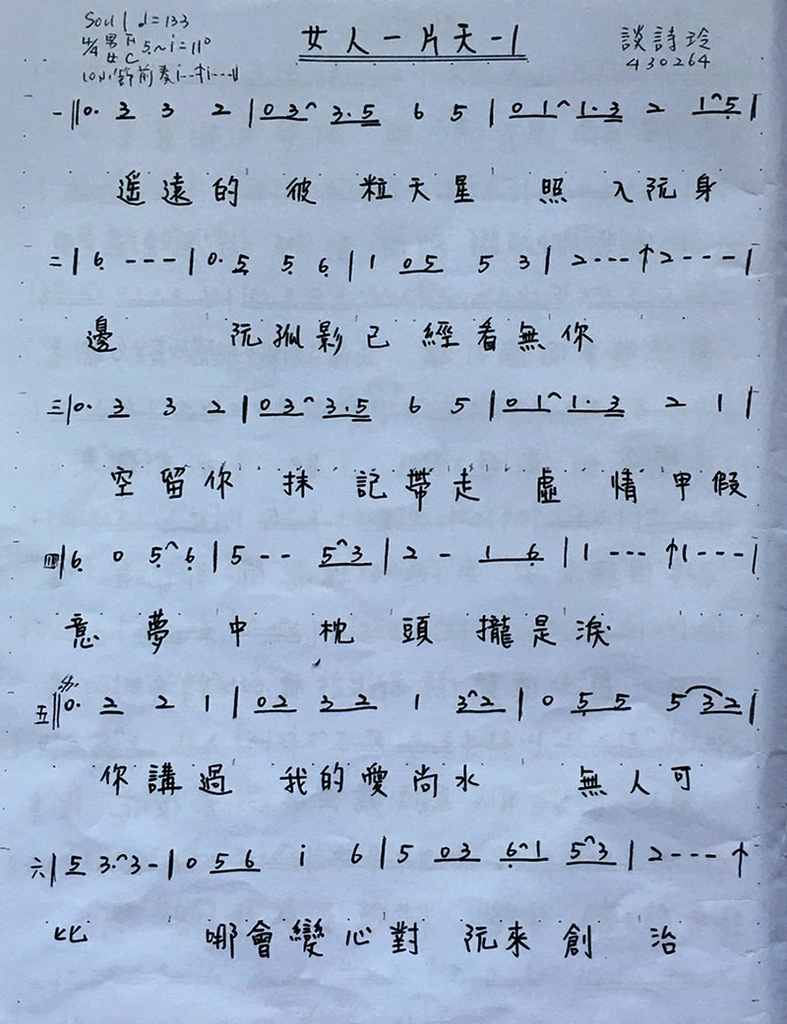 Soul ♩=133
女人一片天-1
談詩玲
4/4 男F 女C 5~i=110
430264
一||0. 3 3 2 | 0 3^ 3.5 6 5 | 0 1^ 1.3 2 1^5 |
遥遠的彼粒天星照入阮身
二| 6 - - - | 0. 5 5 6 | 1 05 5 3 | 2 - - - ↑ 2 - - - |
邊 阮孤影已經看無你
三| 0. 3 3 2 | 0 3^ 3.5 6 5 | 0 1^ 1.3 2 1 |
空留你抹記帶走虛情甲假
四| 6 0 5^6 | 5 - - 5^3 | 2 - 1 6 | 1 - - - ↑ 1 - - - |
意夢中枕頭攏是淚
五|| 0. 2 2 1 | 02 3 2 1 3^2 | 0 5 5 5 3 2 |
你講過我的愛尚水 無人可
六| 5 3.^3 - | 0 5 6 i 6 | 5 03 6^1 5^3 | 2 - - - ↑
比 哪會變心對阮來創治